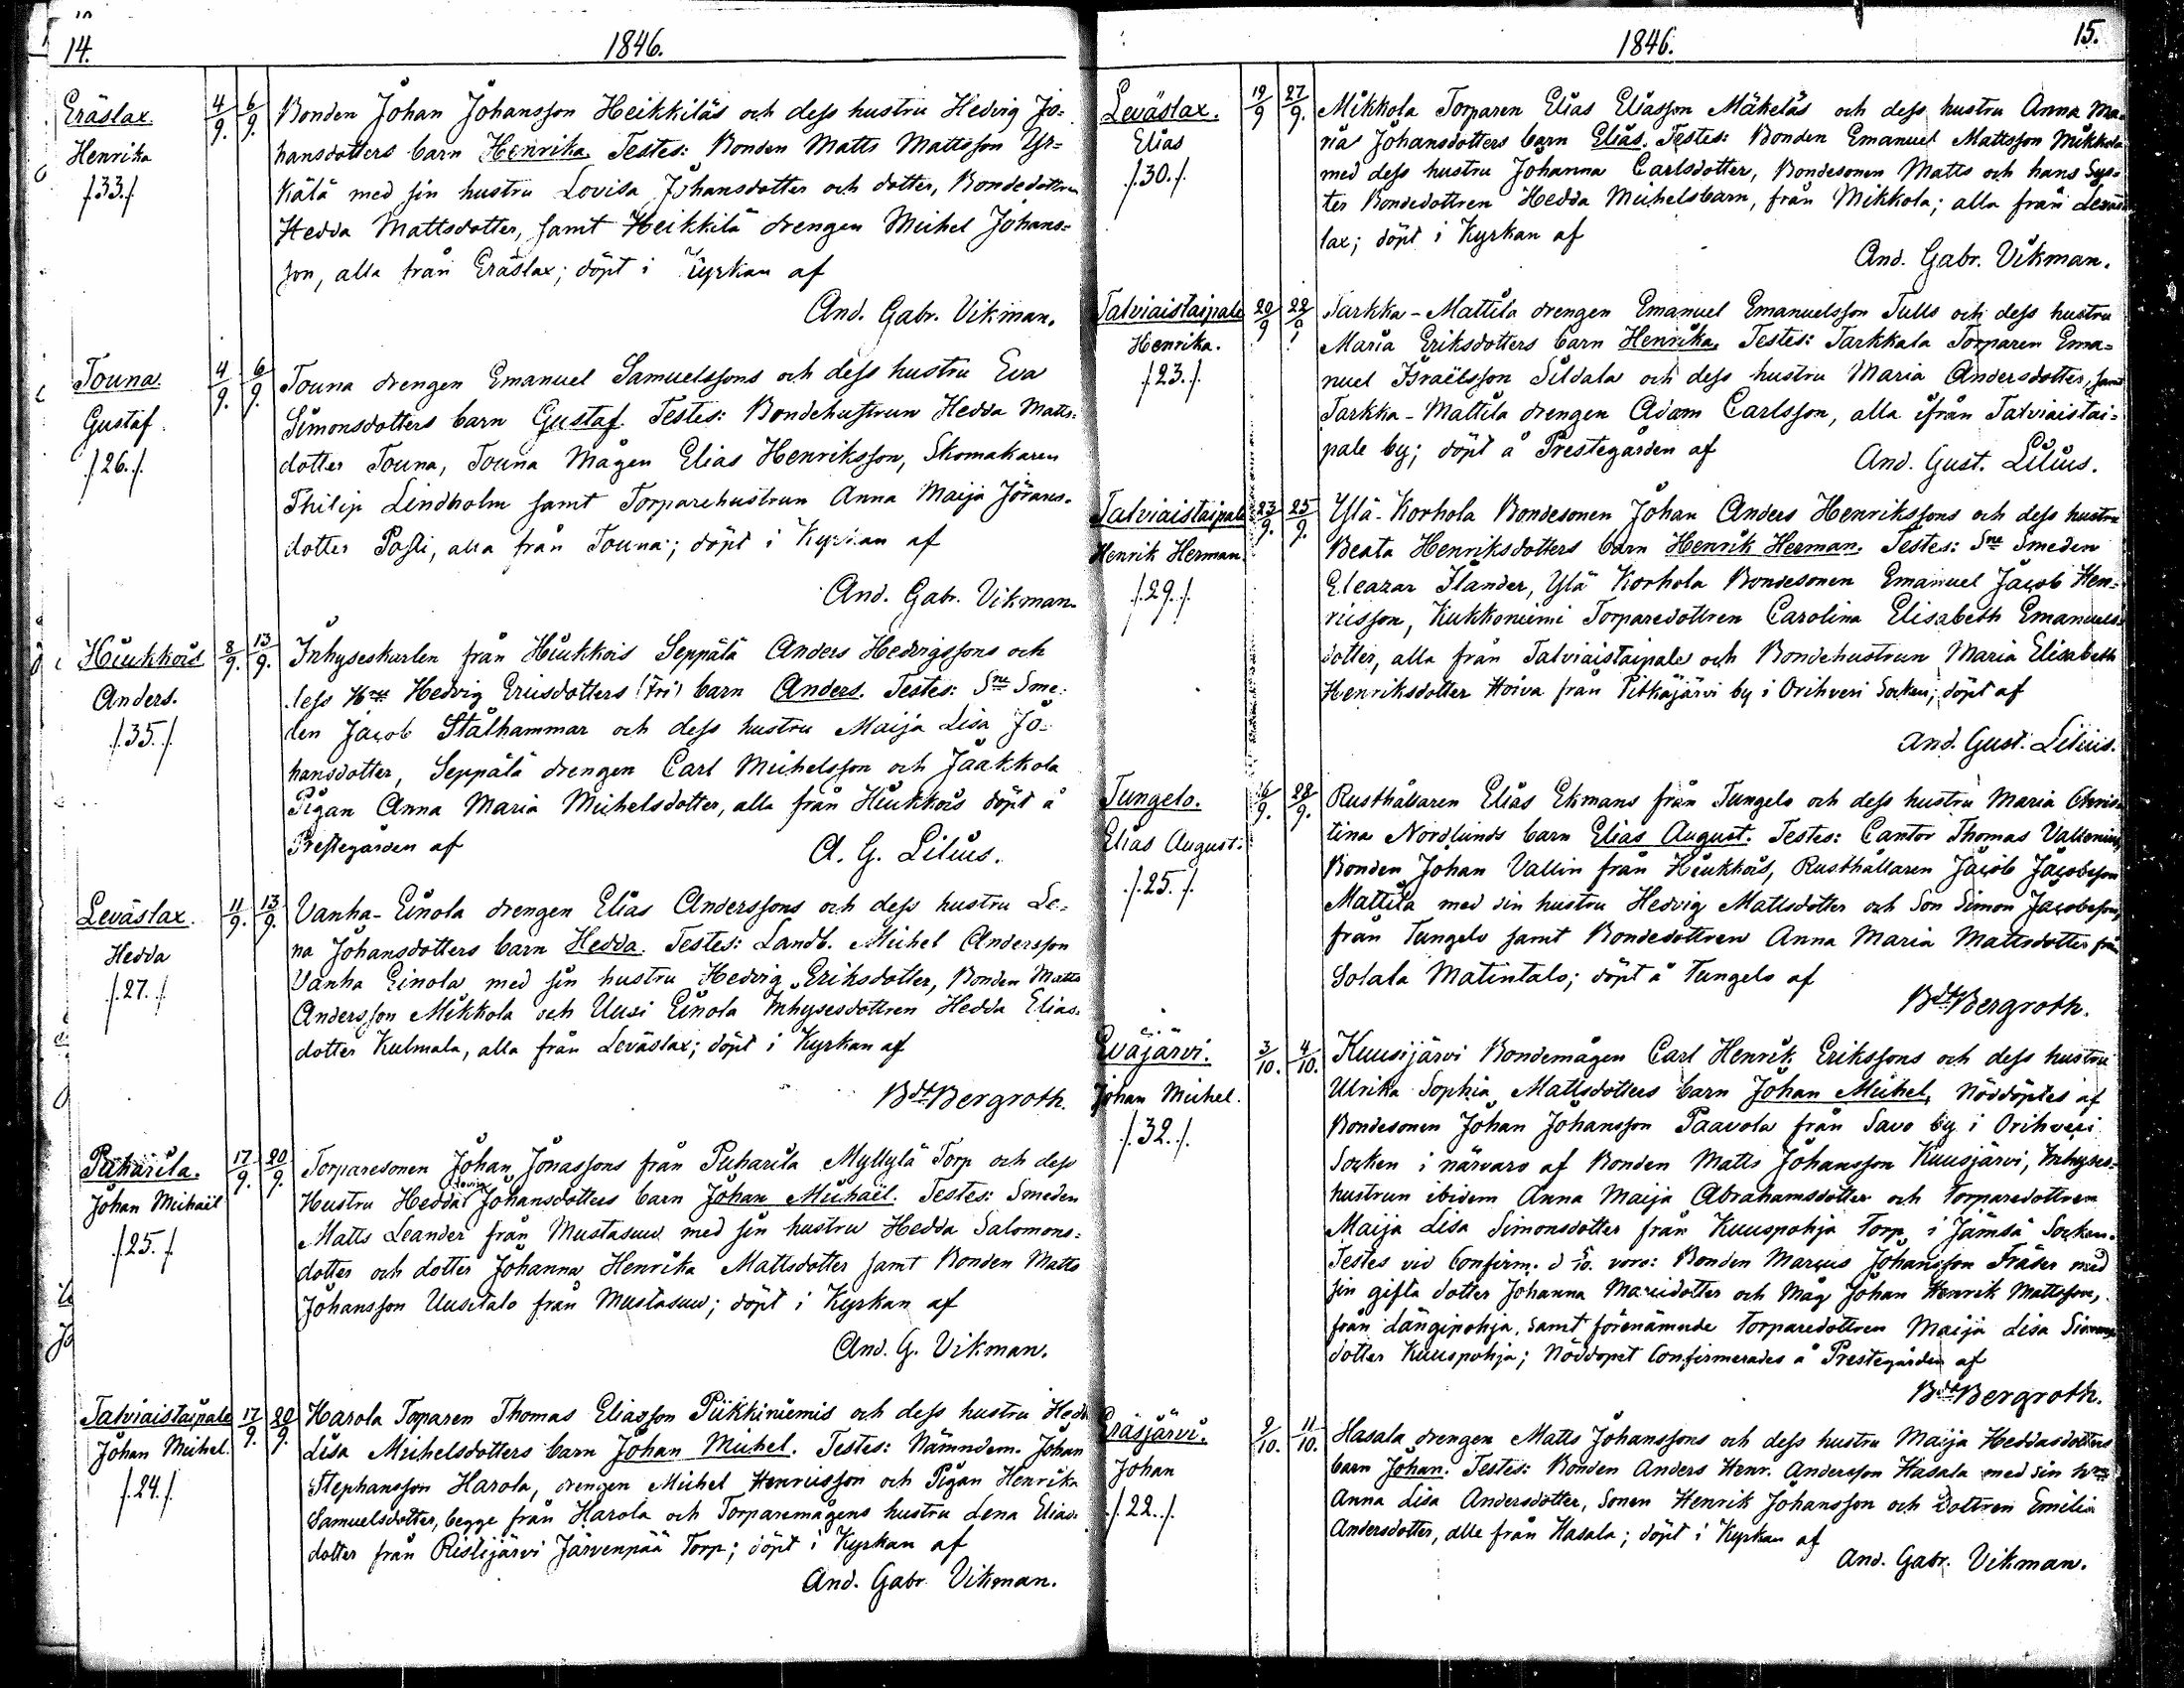 14.
1846.
Eräslax.
Henrika
/.33./
4/9. 6/9.
Bonden Johan Johansson Heikkiläs och dess hustru Hedvig Jo=
hansdotters barn Henrika. Testes: Bonden Matts Mattsson Yr=
kälä med sin hustru Lovisa Johansdotter och dotter, Bondedottren
Hedda Mattsdotter, samt Heikkilä drengen Michel Johans=
son, alla från Eräslax; döpt i Kyrkan af
And. Gabr. Vikman.
Touna.
Gustaf
/.26./.
4/9. 6/9.
Touna drengen Emanuel Samuelssons och dess hustru Eva
Simonsdotters barn Gustaf. Testes: Bondehustrun Hedda Matts=
dotter Touna, Touna Mågen Elias Henriksson, Skomakaren
Philip Lindholm samt Torparehustrun Anna Maija Jörans=
dotter Passi, alla från Touna; döpt i Kyrkan af
And. Gabr. Vikman.
Hiukkois
Anders.
/.35./
8/9. 13/9.
Inhyseskarlen från Hiukkois Seppälä Anders Hedvigssons och
dess Hru Hedvig Ericsdotters (Fri) barn Anders. Testes: Sne Sme=
den Jacob Stålhammar och dess hustru Maija Lisa Jo=
hansdotter, Seppälä drengen Carl Michelsson och Jaakkola
Pigan Anna Maria Michelsdotter, alla från Hiukkois döpt å
Prestegården af
A. G. Lilius.
Leväslax.
Hedda
/.27./
11/9. 13/9.
Vanha-Einola drengen Elias Anderssons och dess hustru Le=
na Johansdotters barn Hedda. Testes: Landb. Michel Andersson
Vanha Einola med sin hustru Hedvig Eriksdotter, Bonden Matts
Andersson Mikkola och Uusi Einola Inhysesdottren Hedda Elias=
dotter Kulmala, alla från Leväslax; döpt i Kyrkan af
Bdt Bergroth.
Puharila.
Johan Michaël
/.25./
17/9. 20/9.
Torparesonen Johan Jonassons från Puharila Myllylä Torp och dess
Hustru Hedda Lovisa Johansdotters barn Johan Michaël. Testes: Smeden
Matts Leander från Mustasuu med sin hustru Hedda Salomons=
dotter och dotter Johanna Henrika Mattsdotter samt Bonden Matts
Johansson Uusitalo från Mustasuu; döpt i Kyrkan af
And. G. Vikman.
Talviaistaipale
Johan Michel.
/.24./
17/9. 20/9.
Harola Torparen Thomas Eliasson Piikkiniemis och dess hustru Hedda
Lisa Michelsdotters barn Johan Michel. Testes: Nämndem. Johan
Stephansson Harola, drengen Michel Henricsson och Pigan Henrika
Samuelsdotter, begge från Harola och Torparemågens hustru Lena Elias=
dotter från Ristijärvi Järvenpää Torp; döpt i Kyrkan af
And. Gabr. Vikman.
1846.
15.
Leväslax.
Elias
/.30./.
19/9 27/9.
Mikkola Torparen Elias Eliasson Mäkeläs och dess hustru Anna Ma=
rias Johansdotters barn Elias. Testes: Bonden Emanuel Mattsson Mikkola
med dess hustru Johanna Carlsdotter, Bondesonen Matts och hans Sys=
ter Bondedottren Hedda Michelsbarn, från Mikkola; alla från Leväs=
lax; döpt i Kyrkan af
And. Gabr. Vikman.
Talviaistaipale
Henrika.
/.23./.
20/9 22/9
Tarkka-Mattila drengen Emanuel Emanuelsson Tulls och dess hustru
Maria Eriksdotters barn Henrika. Testes: Tarkkala Torparen Ema=
nuel Israëlsson Sildala och dess hustru Maria Andersdotter, samt
Tarkka-Mattila drengen Adam Carlsson, alla ifrån Talviaistai=
pale by; döpt å Prestegården af
And. Gust. Lilius.
Talviaistaipale
Henrik Herman.
/.29./.
23/9. 25/9.
Ylä-Korhola Bondesonen Johan Anders Henrikssons och dess hustru
Beata Henriksdotters barn Henrik Herman. Testes: Sne Smeden
Eleazar Ilander, Ylä Korhola Bondesonen Emanuel Jacob Hen=
ricsson, Kukkoniemi Torparedottren Carolina Elisabeth Emanuels=
dotter, alla från Talviaistaipale och Bondehustrun Maria Elisabeth
Henriksdotter Hoiva från Pitkäjärvi by i Orihvesi Socken; döpt af
And. Gust. Lilius.
Tungelo.
Elias August.
/.25./.
16/9. 28/9.
Rusthållaren Elias Ekmans från Tungelo och dess hustru Maria Chris=
tina Nordlunds barn Elias August. Testes: Cantor Thomas Vallenius,
Bonden Johan Vallin från Hiukkois, Rusthållaren Jacob Jacobsson
Mattila med sin hustru Hedvig Mattsdotter och Son Simon Jacobsson,
från Tungelo samt Bondedottren Anna Maria Mattsdotter från
Solala Matintalo; döpt å Tungelo af
Bdt Bergroth.
Eväjärvi.
Johan Michel.
/.32./.
3/10. 4/10.
Kuusijärvi Bondemågen Carl Henrik Erikssons och dess hustru
Ulrika Sophia Mattsdotters barn Johan Michel, Nöddöptes af
Bondesonen Johan Johansson Paavola från Savo by i Orihvesi
Socken i närvaro af Bonden Matts Johansson Kuusjärvi, Inhyses=
hustrun ibidem Anna Maija Abrahamsdotter och Torparedottren
Maija Lisa Simonsdotter från Kuuspohja Torp i Jämsä Socken.
Testes vid Confirm. d 5/10. voro: Bonden Marcus Johansson Fräser med
sin gifta dotter Johanna Maricidotter och Måg Johan Henrik Mattsson,
från Längipohja, samt förenämnde Torparedottren Maija Lisa Simons
dotter Kuuspohja; Nöddopet Confirmerades å Prestegården af
Bdt Bergroth.
Eräsjärvi.
Johan
/.22./.
9/10. 11/10.
Hasala drengen Matts Johanssons och dess hustru Maija Heddasdotters
barn Johan. Testes: Bonden Anders Henr. Andersson Hasala med sin hru
Anna Lisa Andersdotter, Sonen Henrik Johansson och Dottren Emilia
Andersdotter, alla från Hasala; döpt i Kyrkan af
And. Gabr. Vikman.